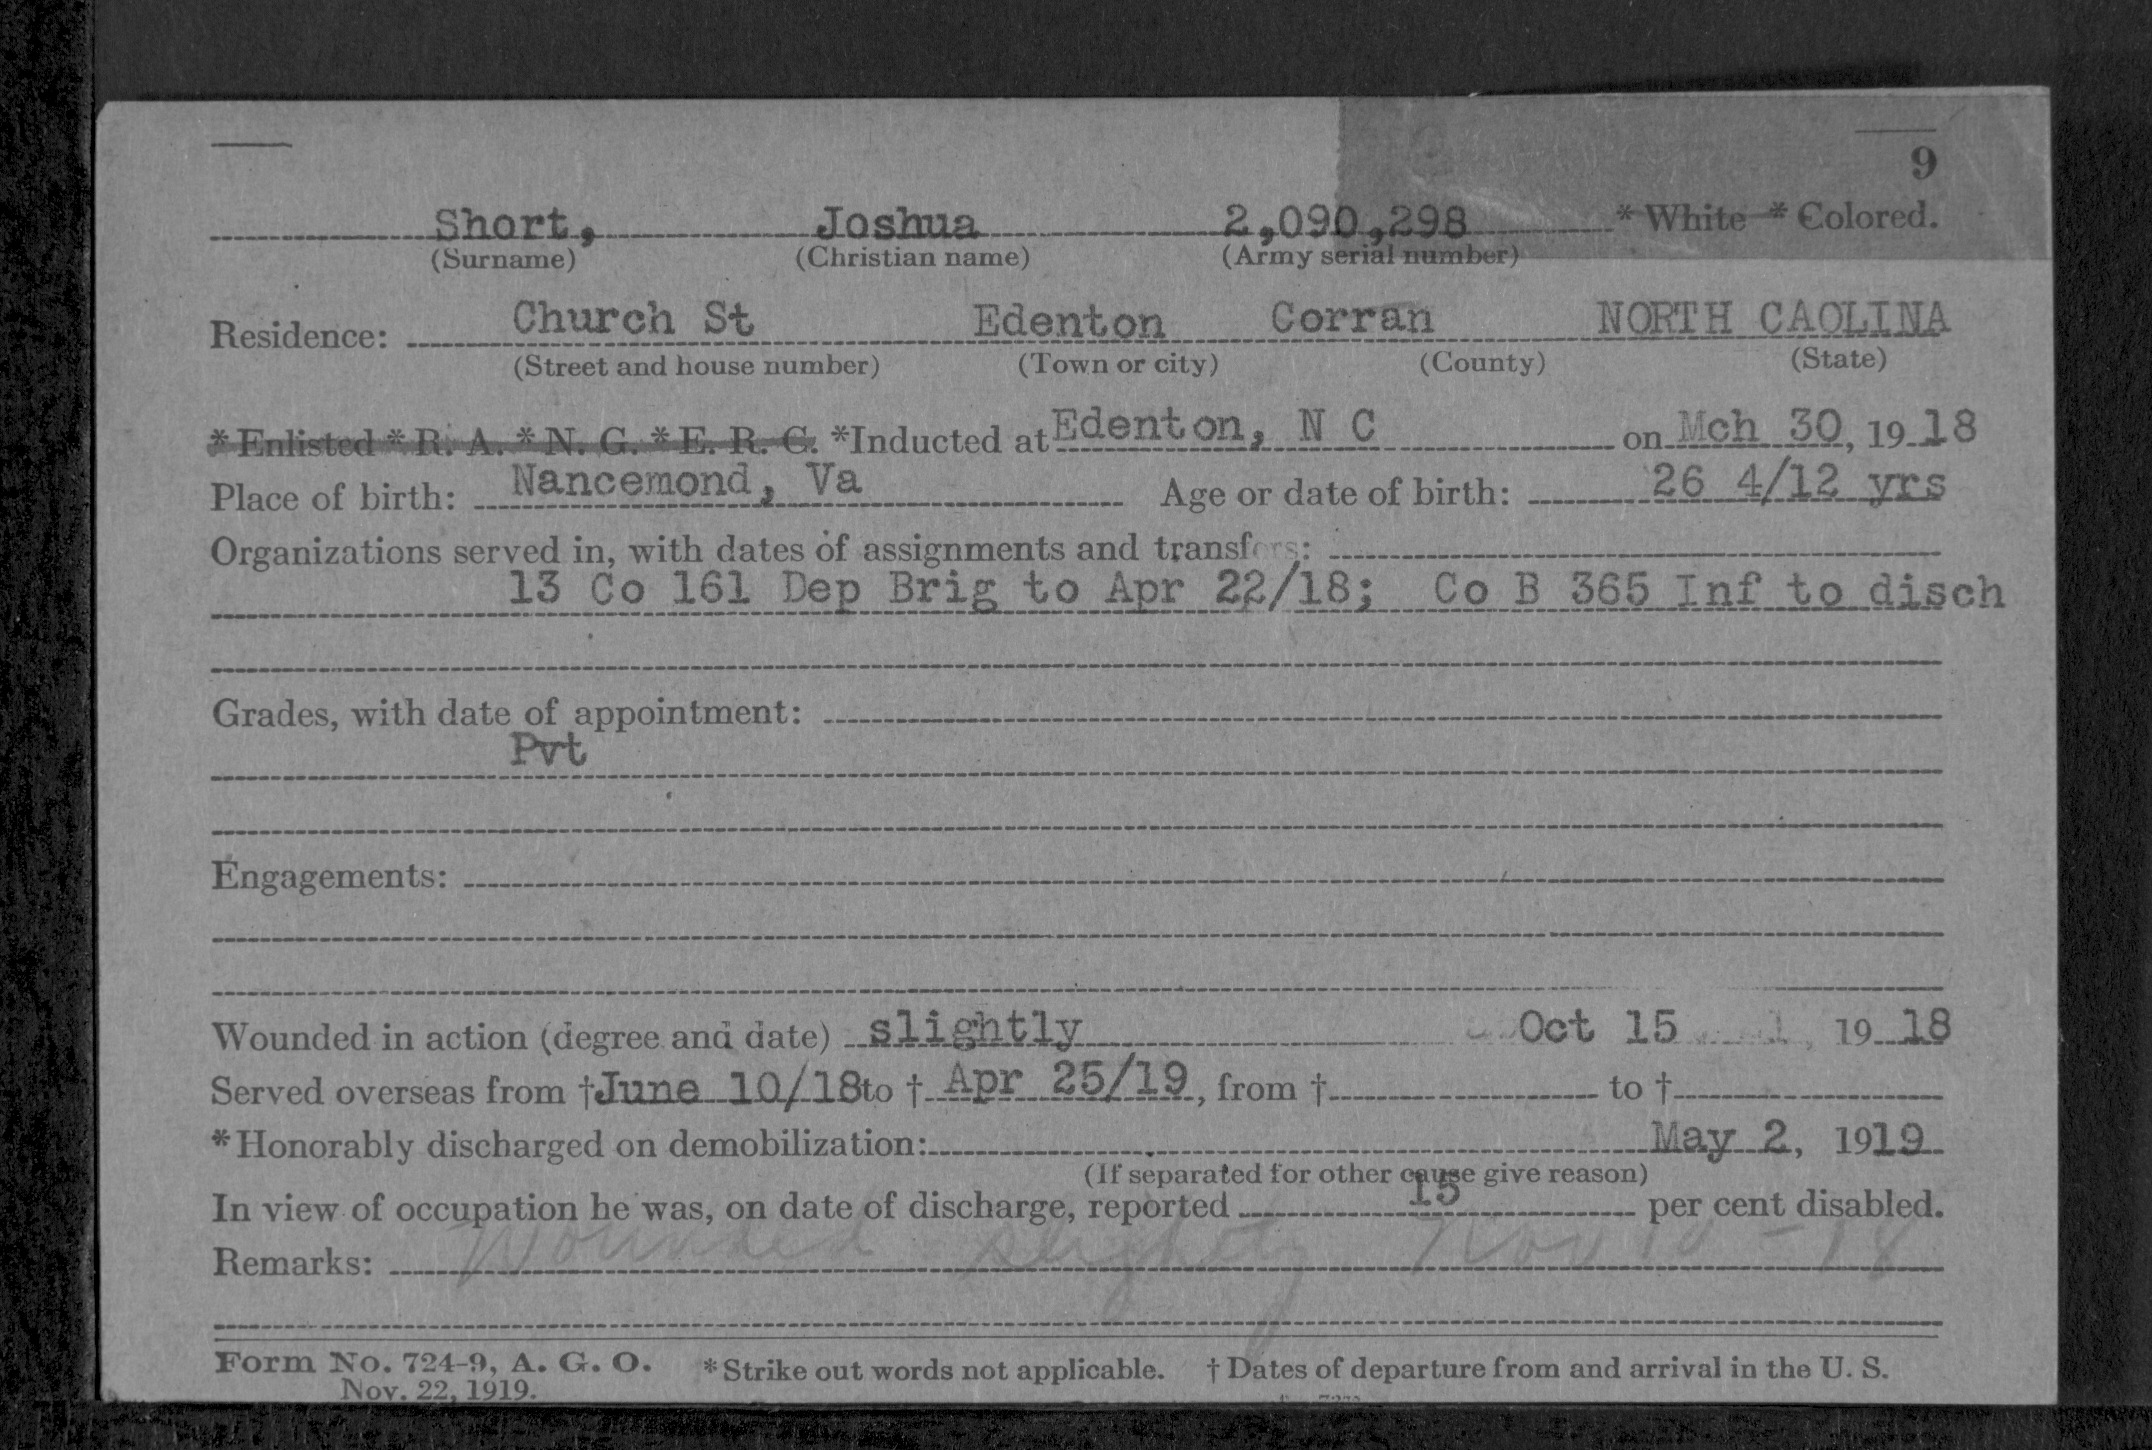 9
Short, Joshua 2,090,298 * White * Colored.
(Surname) (Christian name) (Army serial number)
Residence: Church St Edenton Corran NORTH CAOLINA
(Street and house number) (Town or city) (County) (State)
* Enlisted * R. A. * N. G. * E. R. C. *Inducted at Edenton, N C on Mch 30, 1918
Place of birth: Nancemond, Va Age or date of birth: 26 4/12 yrs
Organizations served in, with dates of assignments and transfers:
13 Co 161 Dep Brig to Apr 22/18; Co B 365 Inf to disch
Grades, with date of appointment:
Pvt
Engagements:
Wounded in action (degree and date) slightly Oct 15 , 1918
Served overseas from †June 10/18 to † Apr 25/19, from † to †
*Honorably discharged on demobilization: May 2, 1919
(If separated for other cause give reason)
In view of occupation he was, on date of discharge, reported 15 per cent disabled.
Remarks: Wounded slightly Nov 10 - 18
Form No. 724-9, A. G. O. *Strike out words not applicable. † Dates of departure from and arrival in the U. S.
Nov. 22, 1919.